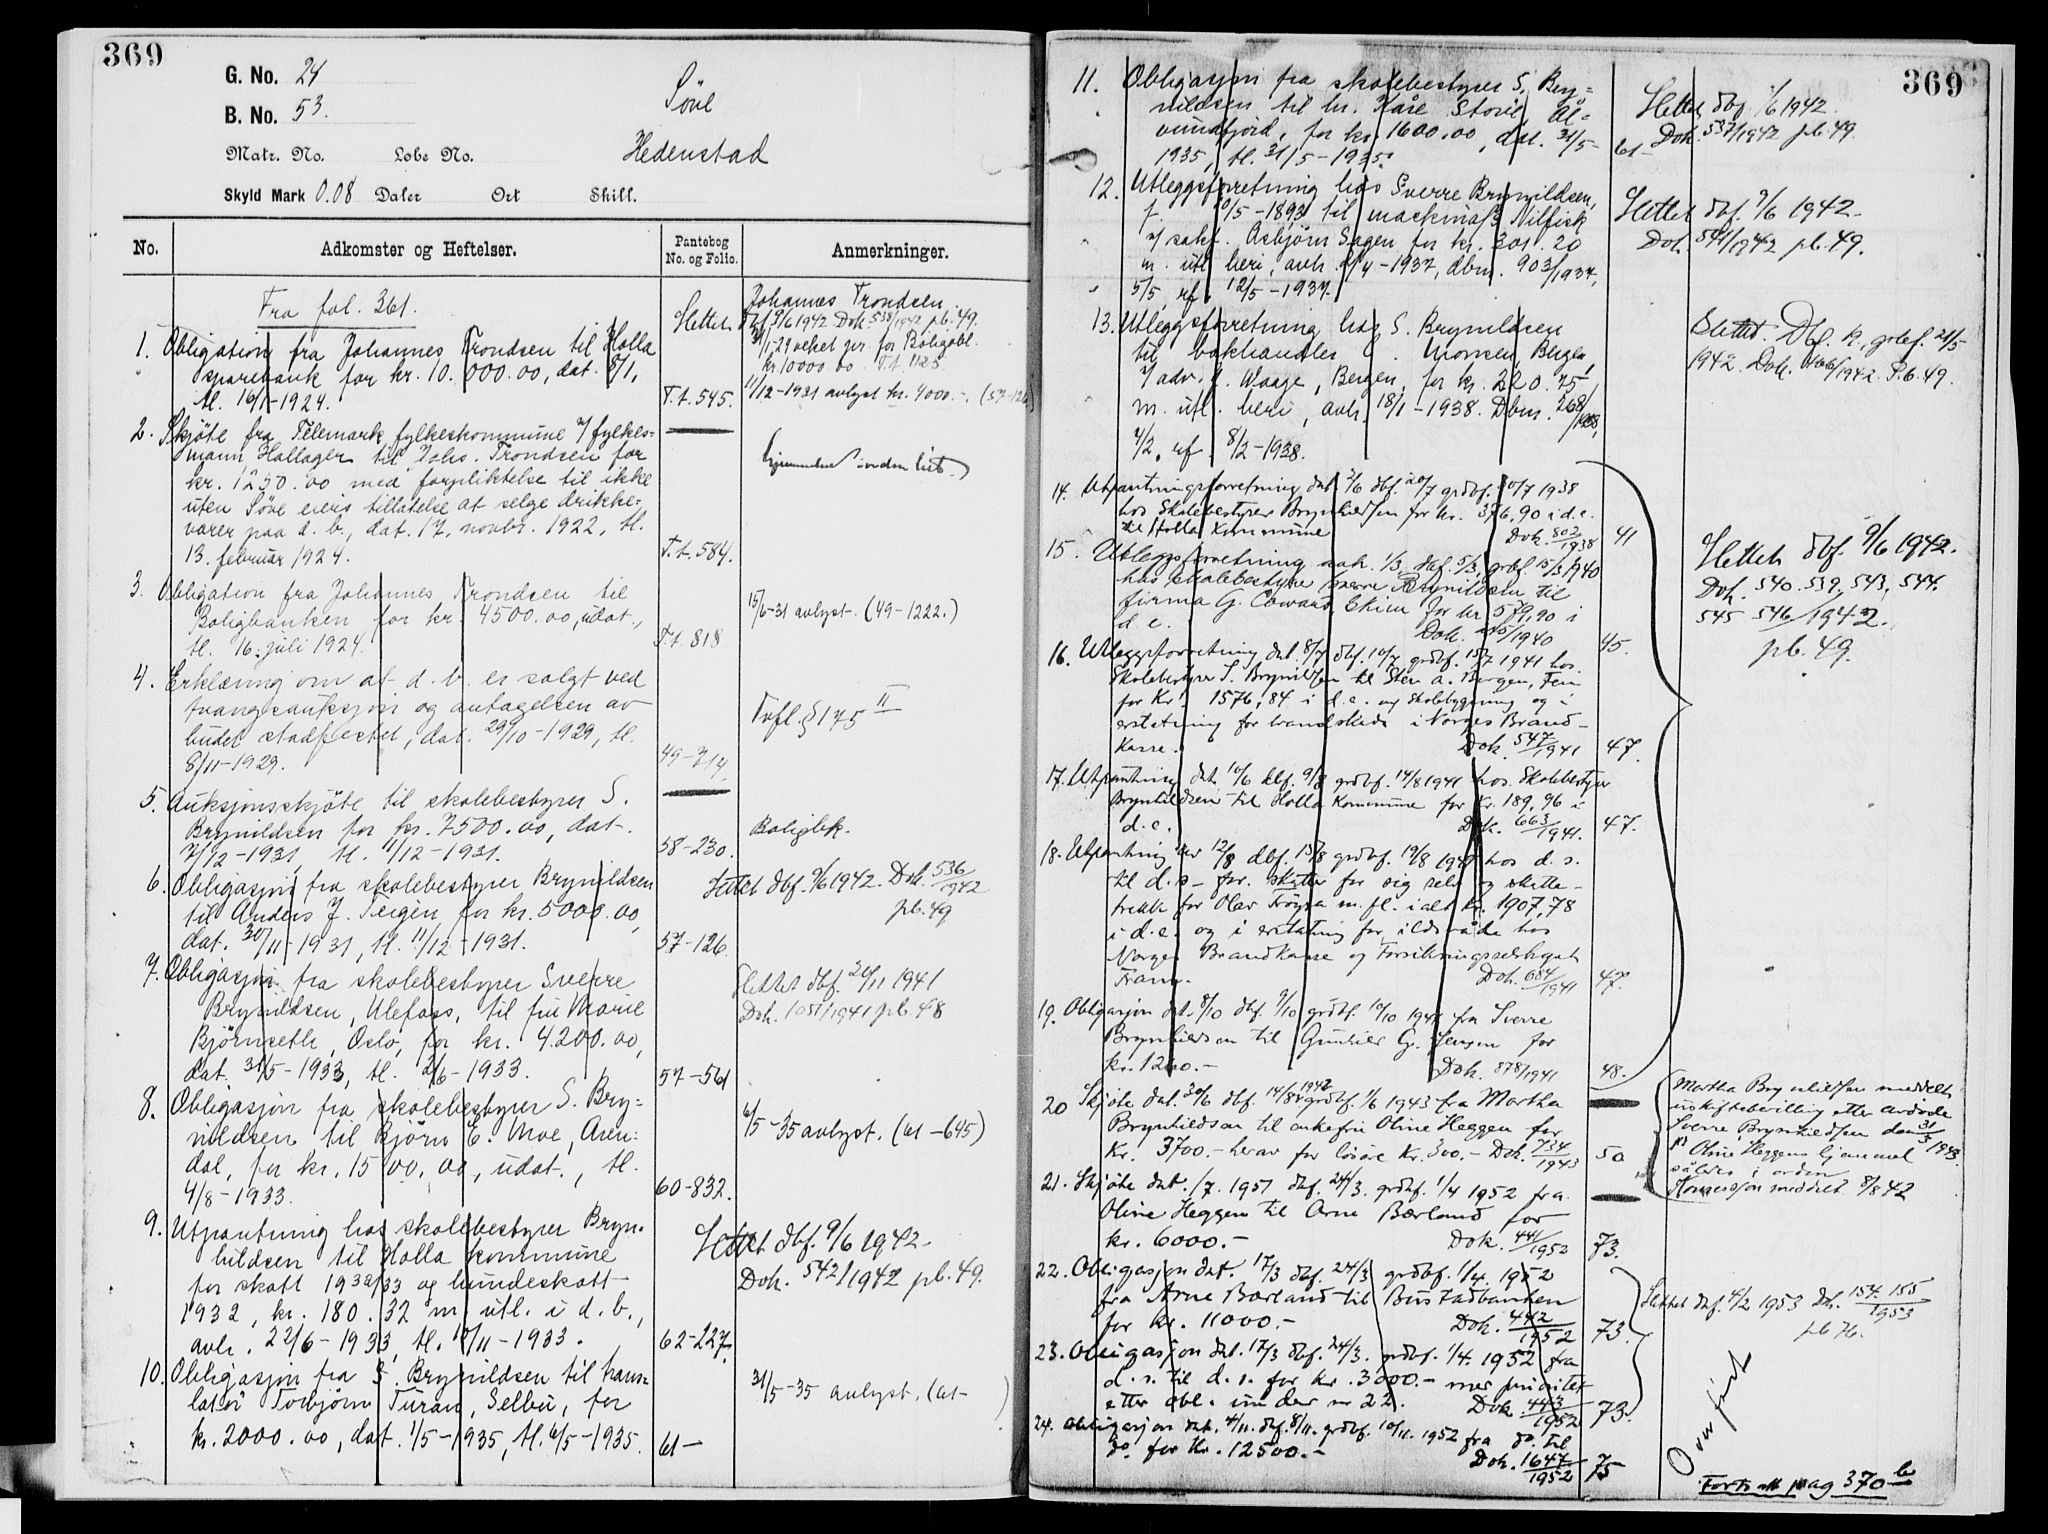 369
G. No. 24
B. No. 53.
Matr. No. Løbe No.
Skyld Mark 0.08 Daler Ort Skill.
Søve
Hedenstad
No. Adkomster og Heftelser. Pantebog No. og Folio. Anmerkninger.
Fra fol. 361.
1. Obligation fra Johannes Trondsen til Holla
sparebank for kr. 10.000.00, dat. 8/1,
tl. 16/1-1924. T.t. 545.
Slettet
Johannes Trondsen.
Dbf. 9/6 1942 Dok. 538/1942 pb. 49.
veket pr. for Boligobl.
kr. 10000.00. T.t. 1125
11/12-1931 avlyst kr. 4000.-. (57-126)
2. Skjøte fra Telemark fylkeskommune v/ fylkes=
mann Hallager til Johs. Trondsen for
kr. 1250.00 med forpliktelse til ikke
uten Søve eiers tillatelse at selge drikke=
varer paa d. b., dat. 17. novbr. 1922, tl.
13. februar 1924. T.t. 584.
3. Obligation fra Johannes Trondsen til
Boligbanken for kr. 4500.00, udat.,
tl. 16. juli 1924. T.t. 818
15/6-31 avlyst. (49-1222.)
4. Erklæring om at d. b. er solgt ved
tvangsauksjon og antagelsen av
budet stadfestet, dat. 29/10-1929, tl.
8/11-1929. 49-714.
Tvfl. § 175 II
5. Auksjonsskjøte til skolebestyrer S.
Brynildsen for kr. 7500.00, dat.
7/12-1931, tl. 11/12-1931. 58-230.
Boligbk.
6. Obligasjon fra skolebestyrer Brynildsen
til Anders J. Teigen for kr. 5000.00,
dat. 30/11-1931, tl. 11/12-1931. 57-126
Slettet dbf. 9/6 1942. Dok. 536/1942
pb. 49
7. Obligasjon fra skolebestyrer Sverre
Brynildsen, Ulefoss, til fru Marie
Bjørnseth, Oslo, for kr. 4.200.00,
dat. 31/5-1933, tl. 2/6-1933. 57-561
Slettet dbf. 20/11 1941
Dok. 1051/1941 pb. 48
8. Obligasjon fra skolebestyrer S. Bry=
nildsen til Bjørn E. Moe, Aren=
dal, for kr. 1500.00, udat., tl.
4/8-1933. 60-832.
6/5-35 avlyst. (61-645)
9. Utpantning hos skolebestyrer Bryn=
hildsen til Holla kommune
for skatt 1932/33 og hundeskatt
1932, kr. 180.32 m. utl. i d. b.,
avh. 22/6-1933, tl. 10/11-1933. 62-227.
Slettet dbf. 9/6 1942-
Dok. 542/1942 pb. 49.
10. Obligasjon fra S. Brynildsen til trans=
latør Torbjørn Turan, Selbu, for
kr. 2000.00, dat. 1/5-1935, tl. 6/5-1935. 61-
31/5-35 avlyst. (61- )
369
11. Obligasjon fra skolebestyrer S. Bry=
nildsen til hr. Kåre Storli, Al=
vundfjord, for kr. 1600.00, dat. 31/5-
1935, tl. 31/5-1935. 61-
Slettet dbf. 9/6 1942.
Dok. 537/1942 pb. 49.
12. Utleggsforretning hos Sverre Brynildsen,
f. /5-1893 til maskina/s Nilfisk
v/ sakf. Asbjørn Sagen for kr. 301.20
m. utl. heri, avh. /4-1937, dbm. 903/1937,
5/5, rf. 12/5-1937.
Slettet dbf. 9/6 1942-
Dok. 541/1942 pb. 49.
13. Utleggsforretning hos S. Brynildsen
til bokhandler Monsen, Bergen,
v/ adv. Waage, Bergen, for kr. 220.75
m. utl. heri, avh. 18/1-1938. Dbm. 268/1938,
4/2, rf. 8/2-1938.
Slettet. Dbf. 21/5
1942. Dok. 1942. P.b. 49.
14. Utpantningsforretning dat. dbf. 20/7 grdbf. 20/7 1938
hos Skolebestyrer Brynhildsen for kr. 376,90 i d.e.
til Holla Kommune Dok. 802/1938 41
15. Utleggsforretning avh. 1/3 dbf. 5/3 grbf. 15/3 1940
hos skolebestyrer Sverre Brynildsen til
firma G. Coward Skien for kr. 579,90 i
d. e. Dok. /1940 45.
16. Utleggsforretning dat. 8/7 dbf. 10/7 grdbf. 15/7 1941 hos
Skolebestyrer S. Brynildsen til Sten A. Bergen,
for Kr. 1576,84 i d. e. og skolebygning og i
erstatning for brandskade i Norges Brand-
kasse. Dok. 547/1941 47.
17. Utpantning dat. 10/6 dbf. 9/8 grdbf. 14/8 1941 hos Skolebestyrer
Brynhildsen til Holla Kommune for Kr. 189,96 i
d. e. Dok. 663/1941. 47.
18. Utpantning av 12/8 dbf. 15/8 grdbf. 19/8 1941 hos d. s.
til d. s. - for skatter for sig selv og skatte-
trekk for Olav m. fl. i alt Kr. 1907,78
i d. e. og i erstatning for ildsvåde hos
Norges Brandkasse og Forsikringsselskapet
Fram. Dok. 684/1941 47.
19. Obligasjon dat. 8/10 dbf. 9/10 grdbf. 10/10 1941 fra Sverre
Brynhildsen til Gunhild G. Jensen for
kr. 1260.- Dok. 878/1941 48.
Slettet dbf. 9/6 1942.
Dok. 540. 539, 543, 544.
545 546/1942.
pb. 49.
20 Skjøte dat. 30/6 dbf. 14/8 1942 grdbf. 1/6 1943 fra Martha
Brynhildsen til enkefru Oline Heggen for
Kr. 3700.- herav for løsøre Kr. 300.- Dok. 734/1943 50
Martha Brynhildsen meddelt
uskiftebevilling etter avdøde
Sverre Brynhildsen den 31/3 1943.
Oline Heggens hjemmel
således i orden
Konsesjon meddelt 8/8 42
21. Skjøte dat. /7. 1951 dbf. 24/3. grdbf. 1/4 1952 fra
Oline Heggen til Arne Børland for
kr. 6000.- Dok. 441/1952 73.
22. Obligasjon dat. 17/3 dbf. 24/3 grdbf. 1/4. 1952
fra Arne Børland til Bustadbanken
for kr. 11000.- Dok. 442/1952 73.
23. Obligasjon dat. 17/3 dbf. 24/3. grdbf. 1/4. 1952 fra
d. s. til d. s. for kr. 3000.- mer prioritet
etter obl. under nr 22. Dok. 443/1952 73.
Slettet dbf. 4/2 1953 Dok. 154. 155/1953
pb 76.
24. Obligasjon dat. 4/11. dbf. 8/11. grdbf. 10/11. 1952 fra do. til
do. for Kr. 12500.- Dok. 1647/1952 75
Overført
Forts. pag 370 b